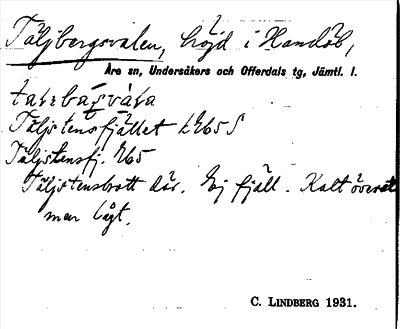 Täljbergsvalen, höjd i Handöl,
Åre sn, Undersåkers och Offerdals tg, Jämtl. l.
Täljstensfjället
Täljstensfj.
Täljstensbrott där. Ej fjäll. Kalt överallt
men lågt.
C. LINDBERG 1931.